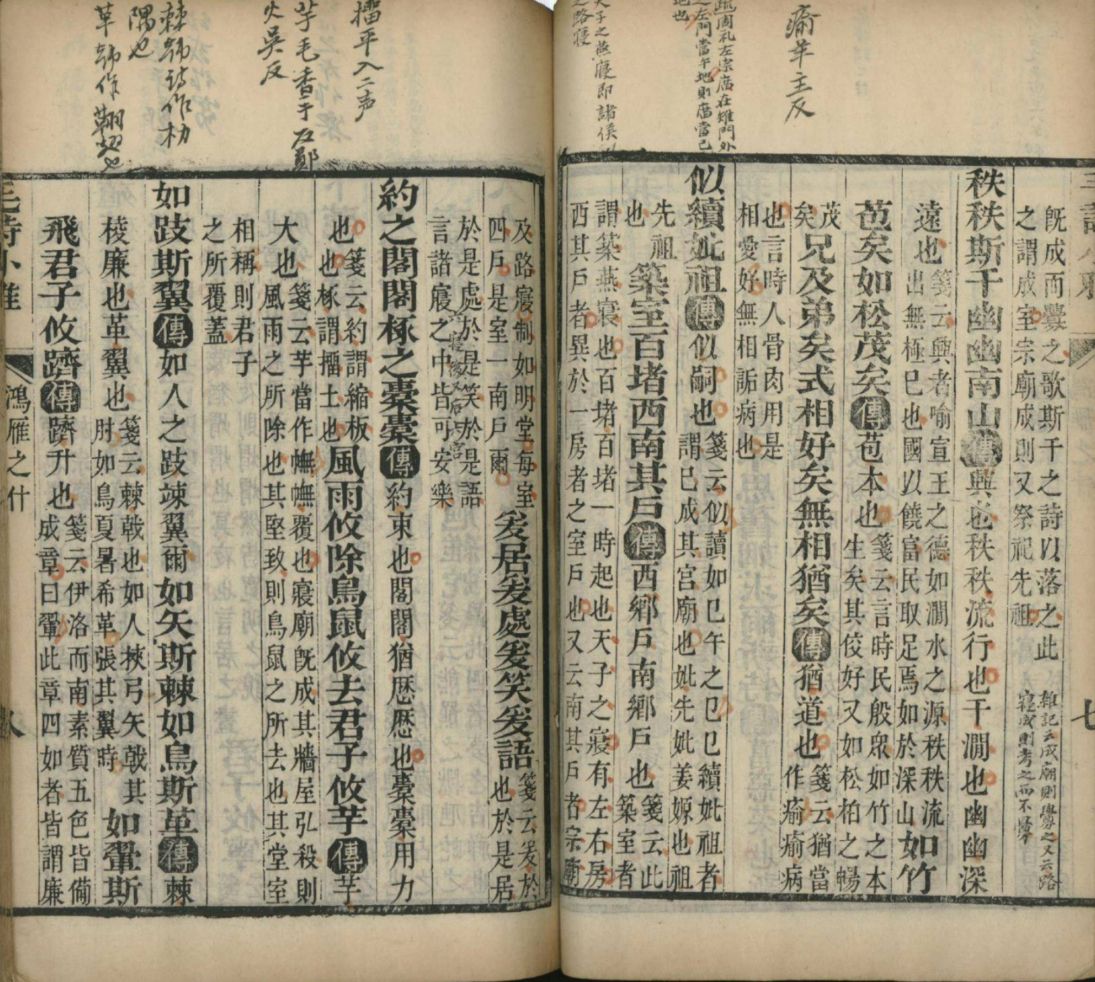 毛詩小雅
七
瘉羊主反
既成而釁之歌斯干之詩以落之此
之謂成室宗廟成則又祭祀先祖
雜記云成廟則釁之又云路
寢成則考之而不釁
秩秩斯干幽幽南山傳興也秩秩流行也干澗也幽幽深
遠也
箋云興者喻宣王之德如澗水之源秩秩流
出無極已也國以饒富民取足焉如於深山
如竹
苞矣如松茂矣傳苞本也
箋云言時民殷衆如竹之本
生矣其佼好又如松柏之暢
茂
矣
兄及弟矣式相好矣無相猶矣傳猶道也
箋云猶當
作瘉瘉病
也言時人骨肉用是
相愛好無相詬病也
周礼左宗廟在雉門外
之左門當午地則廟當巳
地也
似續妣祖傳似嗣也
箋云似讀如巳午之巳巳續妣祖者
謂已成其宮廟也先妣姜嫄也祖
先祖
也
築室百堵西南其戶傳西鄉戶南鄉戶也
箋云此
築室者
天子之燕寢即諸侯
之路寢
謂築燕寢也百堵百堵一時起也天子之寢有左右房
西其戶者異於一房者之室戶也又云南其戶者宗廟
及路寢制如明堂每室
四戶是室一南戶爾
爰居爰處爰笑爰語
箋云爰於
也於是居
於是處於是笑於是語
言諸寢之中皆可安樂
擂平入二声
約之閣閣椓之橐橐傳約束也閣閣猶歷歷也橐橐用力
也
箋云約謂縮板
也椓謂擂土也
風雨攸除鳥鼠攸去君子攸芋傳芋
芋毛香于反鄭
火吳反
大也
箋云芋當作幠幠覆也寢廟既成其牆屋弘殺則
風雨之所除也其堅致則鳥鼠之所去也其堂室
相稱則君子
之所覆蓋
棘韩詩作朸
隅也
革韩作䩐翅也
如跂斯翼傳如人之跂竦翼爾如矢斯棘如鳥斯革傳棘
棱廉也革翼也
箋云棘戟也如人挾弓矢戟其
肘如鳥夏暑希革張其翼時
如翬斯
飛君子攸躋傳躋升也
箋云伊洛而南素質五色皆備
成章曰翬此章四如者皆謂廉
毛詩小雅
鴻雁之什
八